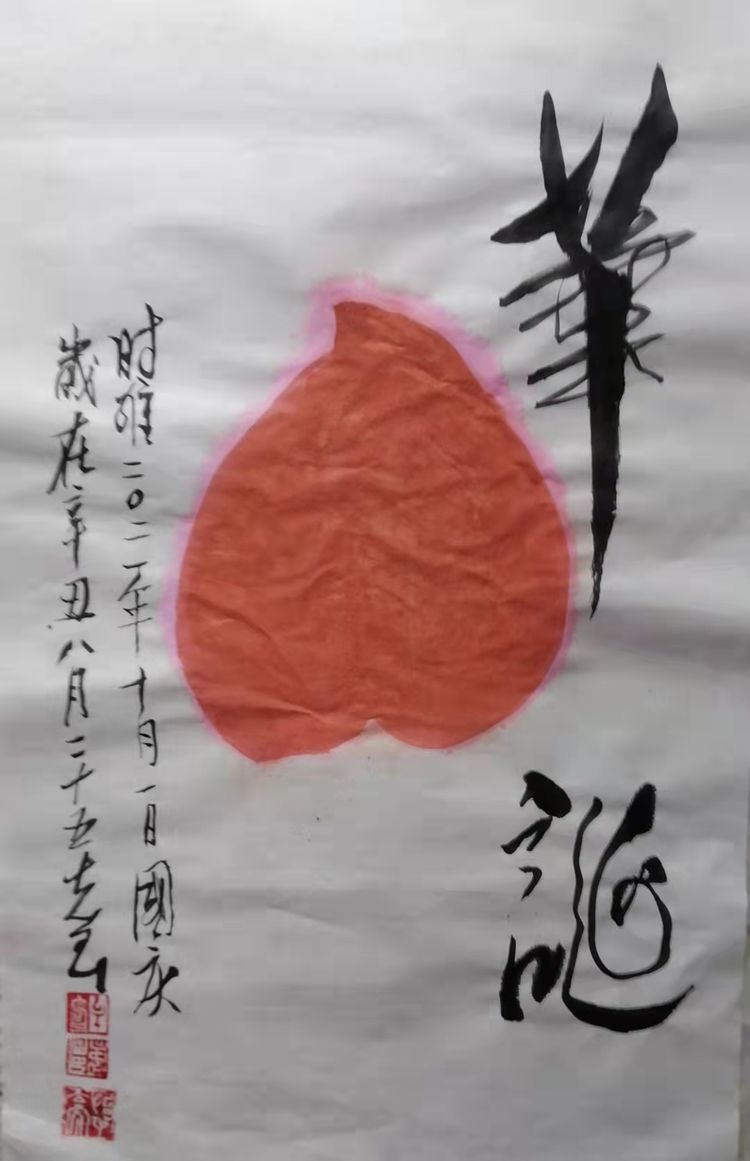 華誕
时维二〇二一年十月一日國庆
歲在辛丑八月二十五